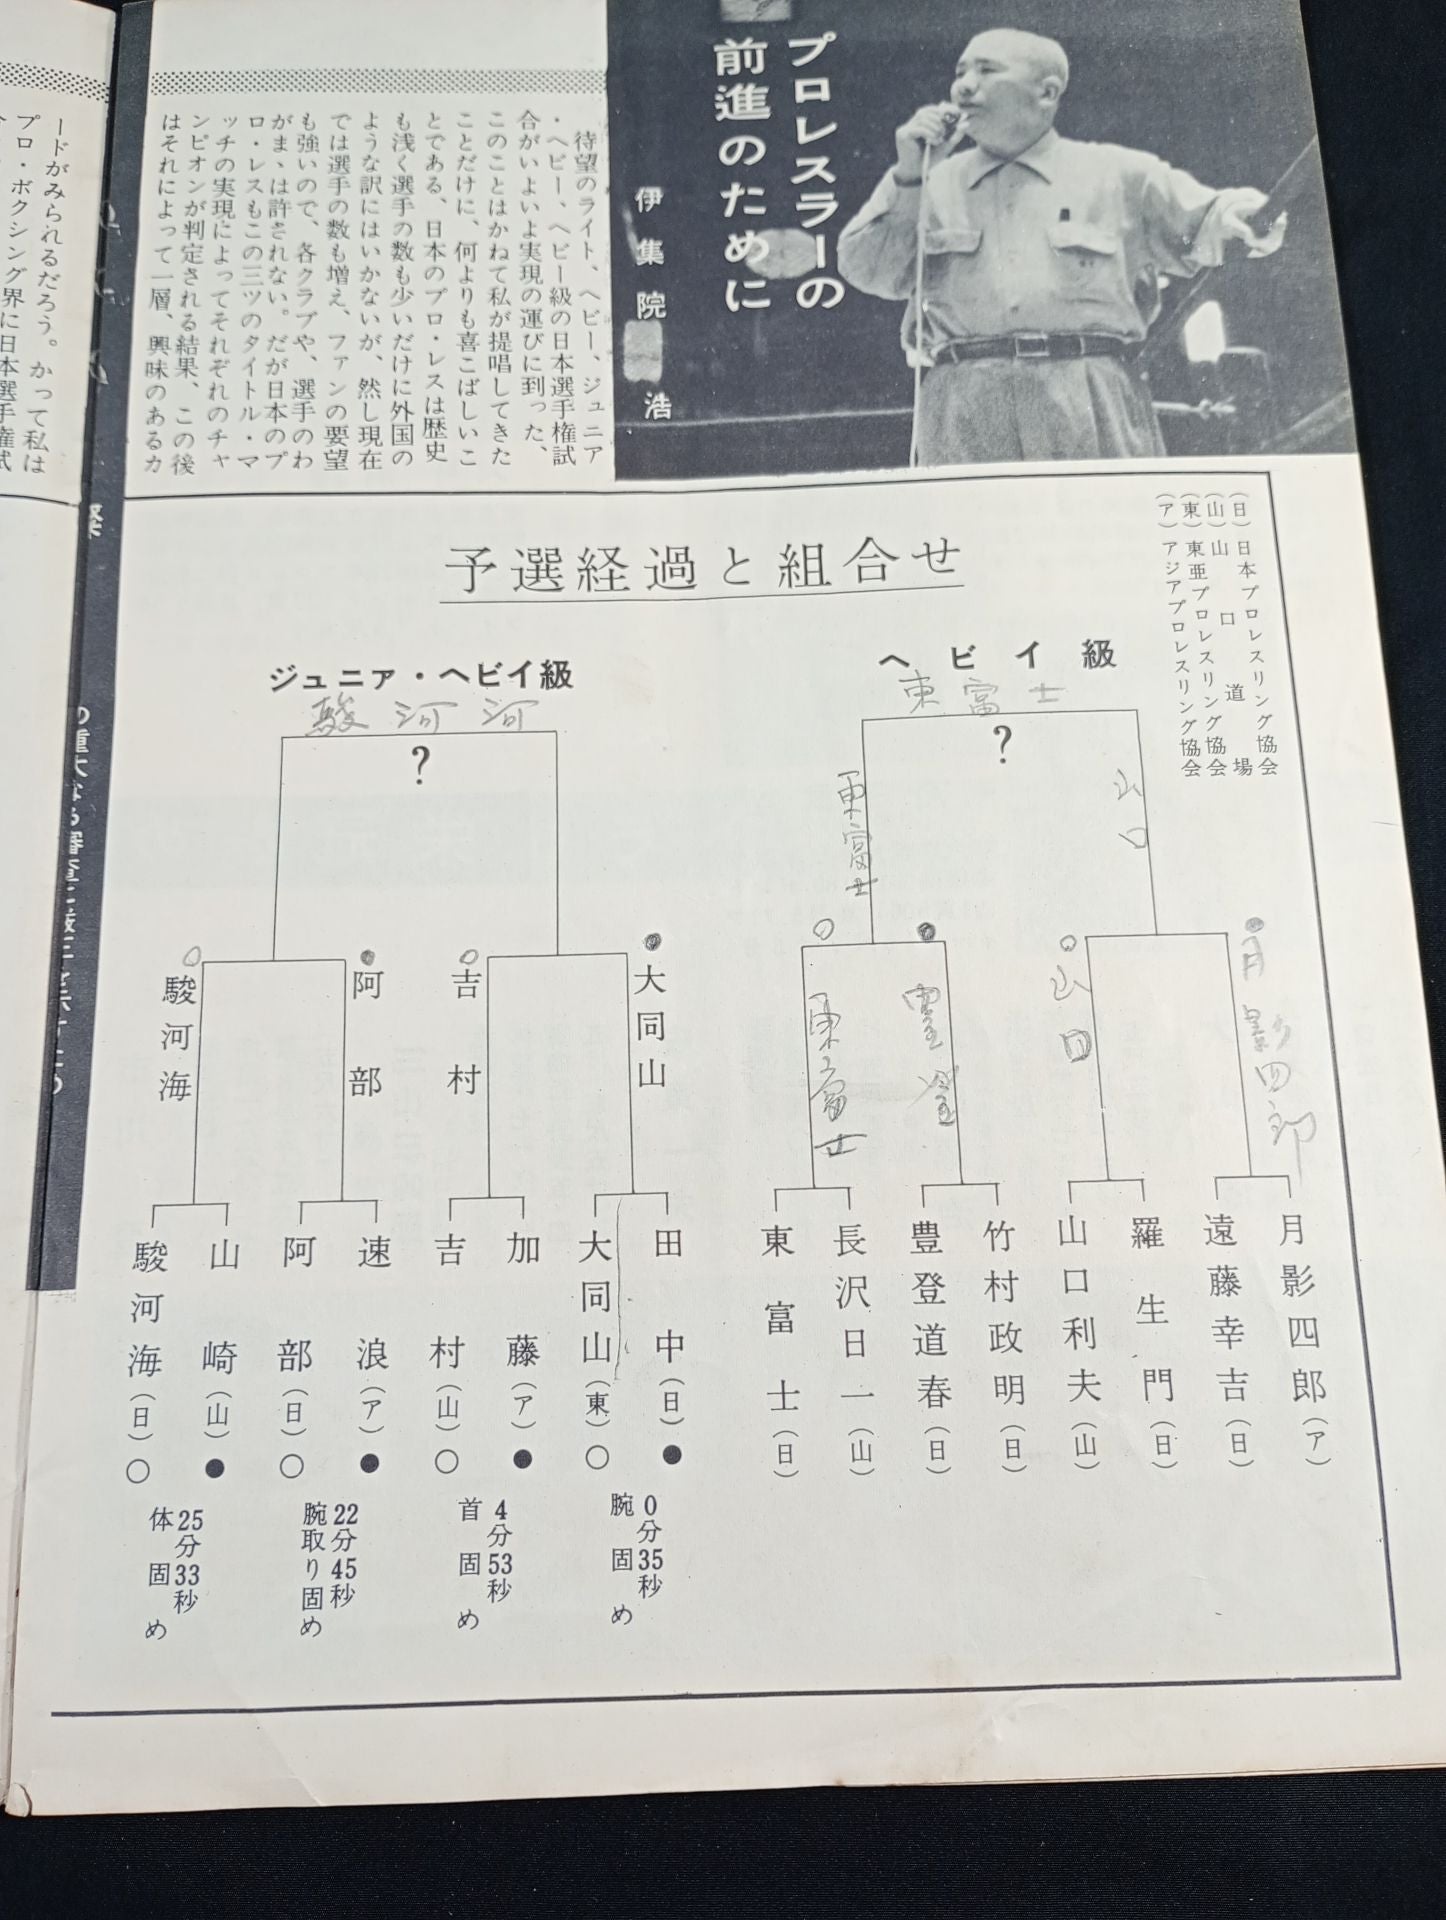 プロレスラーの
前進のために
伊集院 浩
待望のライト、ヘビー、ジュニア
・ヘビー、ヘビー級の日本選手権試
合がいよいよ実現の運びに到った、
このことはかねて私が提唱してきた
ことだけに、何よりも喜こばしいこ
とである、日本のプロ・レスは歴史
も浅く選手の数も少いだけに外国の
ような訳にはいかないが、然し現在
では選手の数も増え、ファンの要望
も強いので、各クラブや、選手のわ
がまゝは許されない。だが日本のプ
ロ・レスもこの三ツのタイトル・マ
ッチの実現によってそれぞれのチャ
ンピオンが判定される結果、この後
はそれによって一層、興味のあるカ
ードがみられるだろう。かって私は
プロ・ボクシング界に日本選手権試
の重大なる審査
予選経過と組合せ
(日)日本プロレスリング協会
(山)山口道場
(東)東亜プロレスリング協会
(ア)アジアプロレスリング協会
ヘビイ級
東富士
?
東富士
山口
東富士
豊登
山口
月影四郎
月影四郎(ア)
遠藤幸吉(日)
羅生門(日)
山口利夫(山)
竹村政明(日)
豊登道春(日)
長沢日一(山)
東富士(日)
ジュニア・ヘビイ級
駿河河
?
大同山
吉村
阿部
駿河海
田中(日)●
大同山(東)○
加藤(ア)●
吉村(山)○
速浪(ア)●
阿部(日)○
山崎(山)●
駿河海(日)○
0分35秒
腕固め
4分53秒
首固め
22分45秒
腕取り固め
25分33秒
体固め